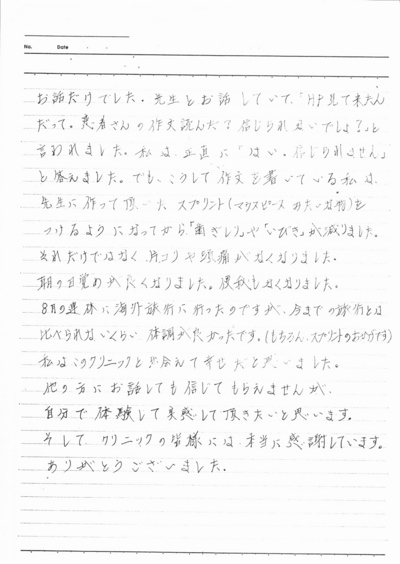 No. Date
お話だけでした。先生とお話していて、「HP見て来たん
だって。患者さんの作文読んだ？信じられないでしょ？」と
言われました。私は、正直に「はい。信じられません」
と答えました。でも、こうして作文を書いている私は、
先生に作って頂いた スプリント(マウスピースみたいな物)を
つけるようになってから「歯ぎしり」や「いびき」が減りました。
それだけではなく、肩コリや頭痛がなくなりました。
朝の目覚めが良くなりました。寝汗もなくなりました。
8月の連休に海外旅行に行ったのですが、今までの旅行とは
比べられないくらい 体調が良かったです。(もちろん、スプリントのおかげです)
私はこのクリニックと出会えて幸せだと思いました。
他の方にお話しても信じてもらえませんが、
自分で体験して実感して頂きたいと思います。
そして、クリニックの皆様には、本当に感謝しています。
ありがとうございました。